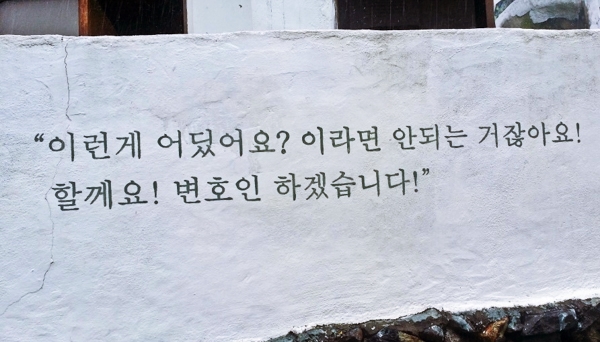 “이런게 어딨어요? 이라면 안되는 거잖아요!
할께요! 변호인 하겠습니다!”